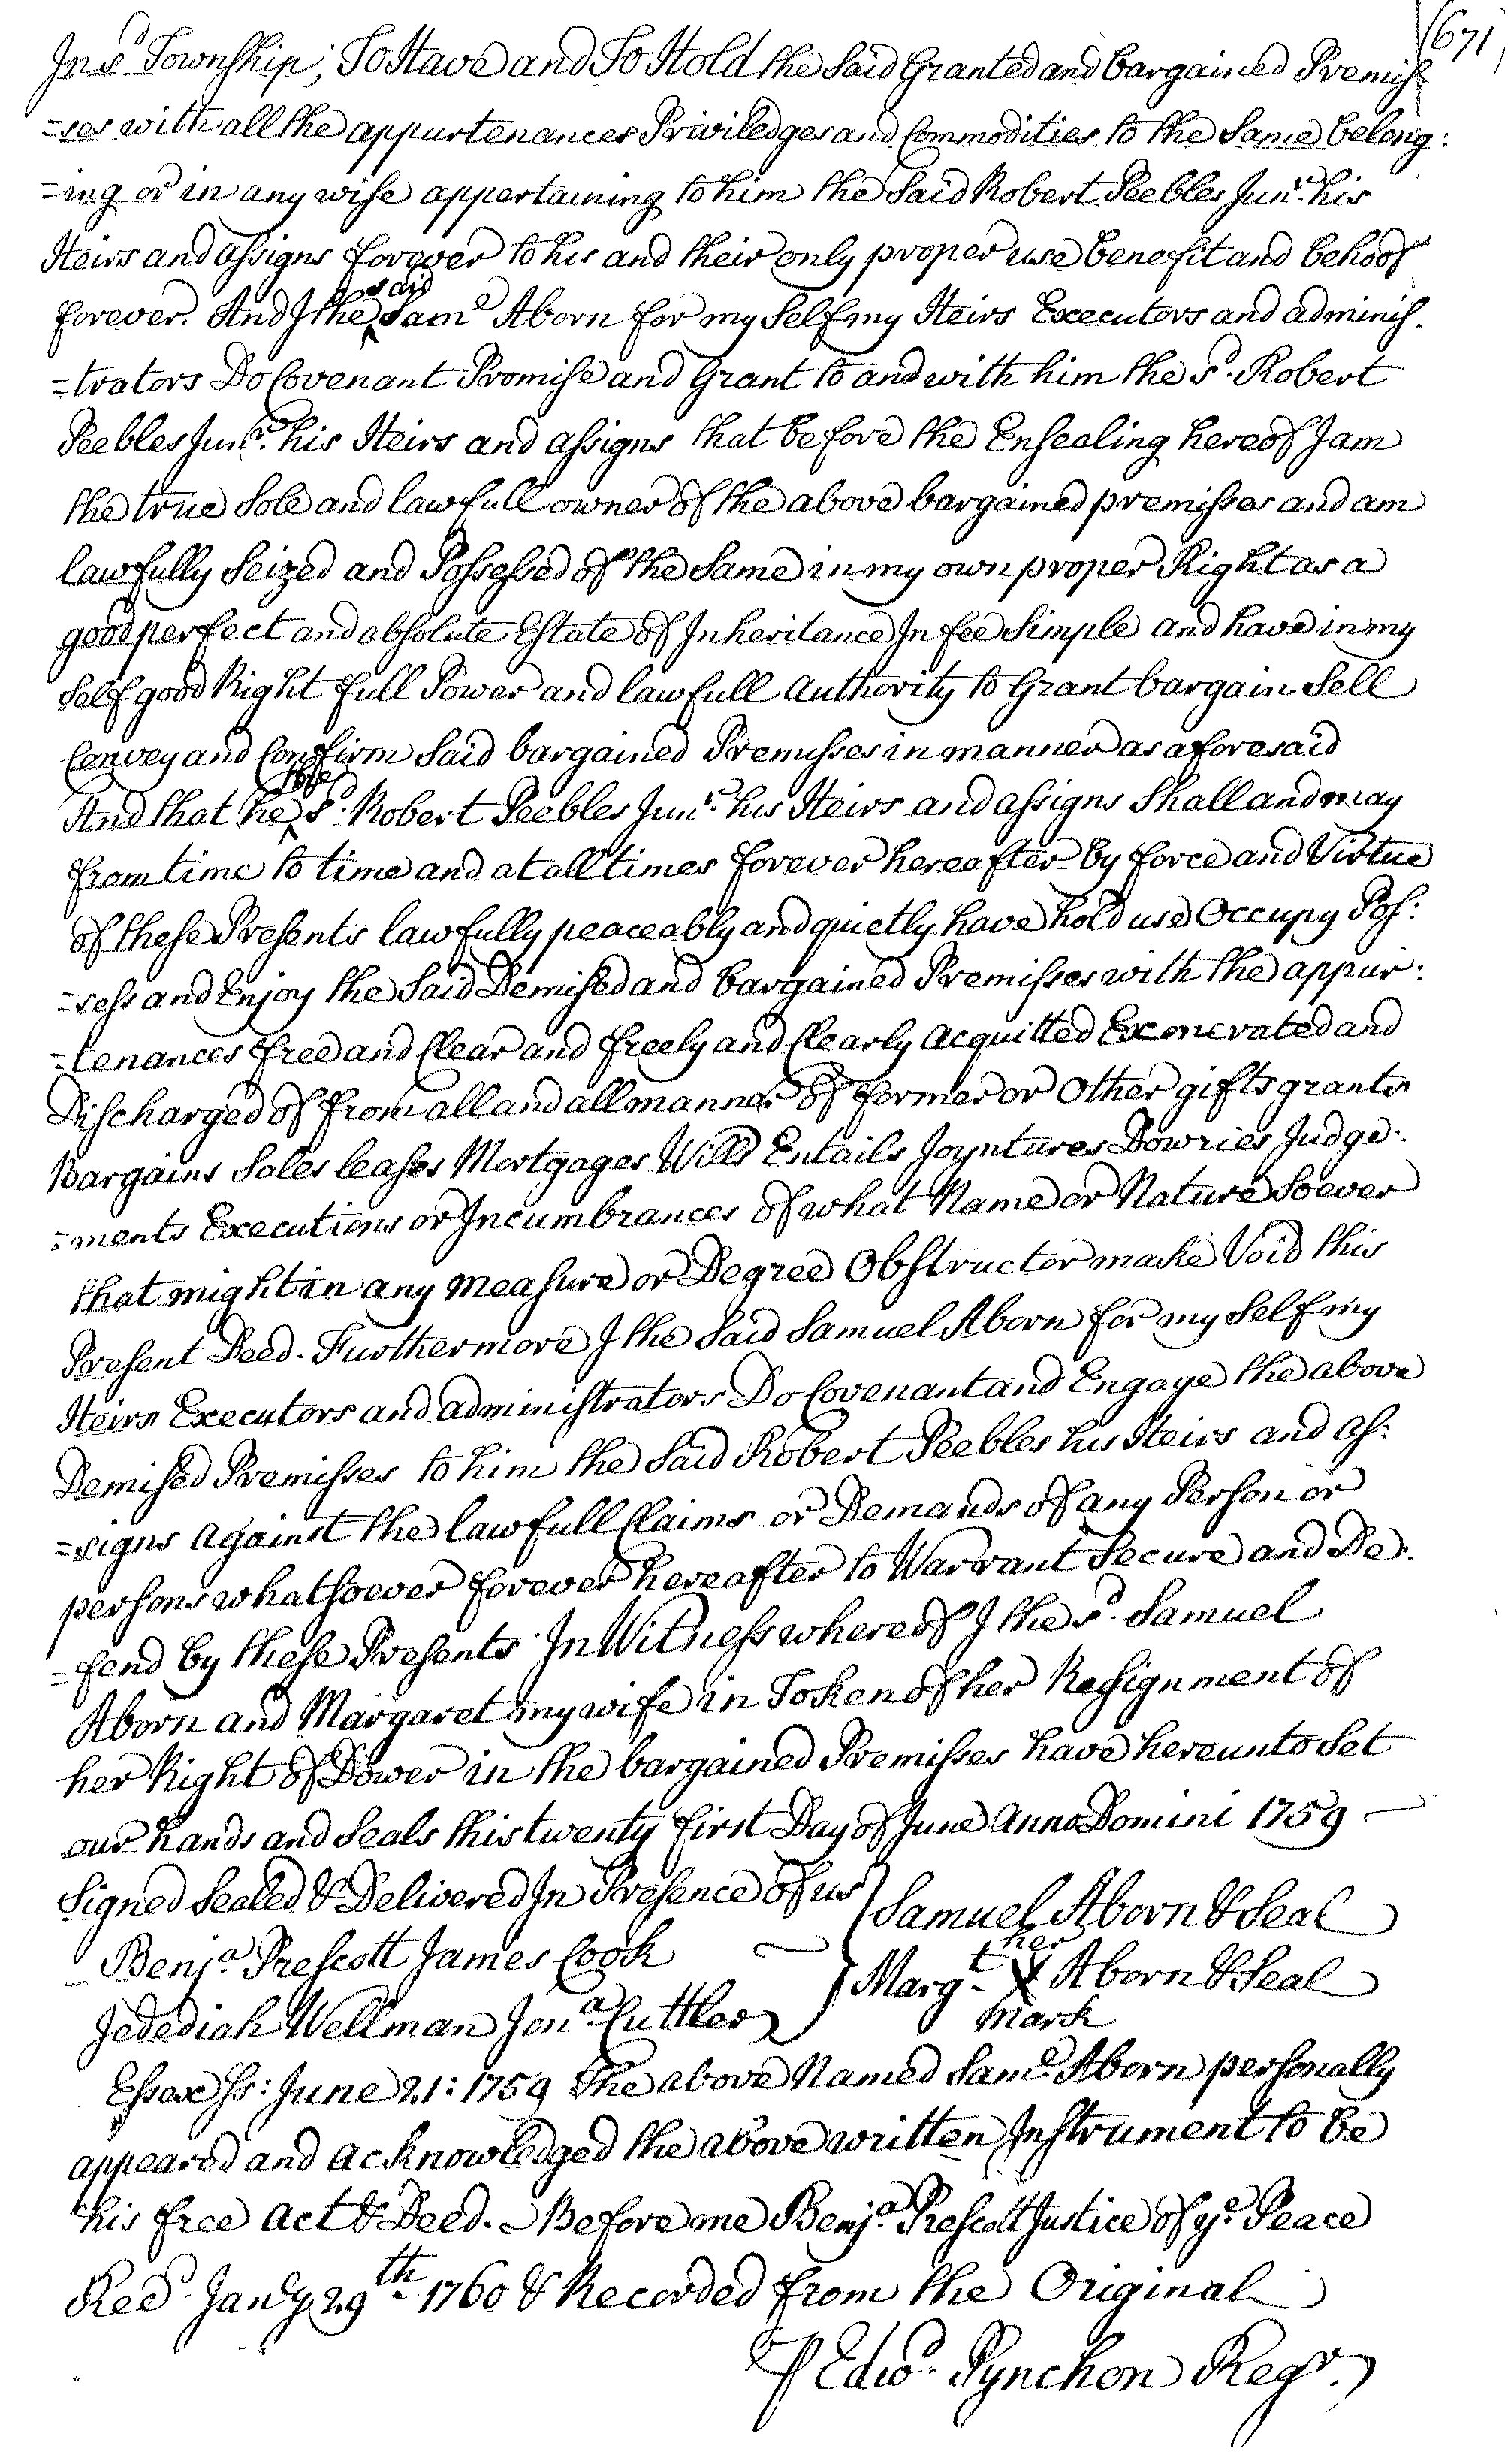 (671)
In sd Township; To Have and To Hold the Said Granted and bargained Premis
=ses with all the appurtenances Priviledges and Commodities to the Same belong:
=ing or in any wise appertaining to him the Said Robert Peebles Junr. his
Heirs and assigns forever to his and their only proper use benefit and behoof
forever. And I the said Saml Aborn for my Self my Heirs Executors and adminis.
=trators Do Covenant Promise and Grant to and with him the sd. Robert
Peebles Junr. his Heirs and assigns that before the Ensealing hereof I am
the true Sole and lawfull owner of the above bargained premisses and am
lawfully Seized and Possessed of the Same in my own proper Right as a
good perfect and absolute Estate of Inheritance In fee Simple and have in my
Self good Right full Power and lawfull Authority to Grant bargain Sell
Convey and Confirm Said bargained Premisses in manner as aforesaid
And that he the sd. Robert Peebles Junr. his Heirs and assigns Shall and may
from time to time and at all times forever hereafter by force and Virtue
of these Presents lawfully peaceably and quietly have hold use Occupy Pos:
=sess and Enjoy the Said Demised and bargained Premisses with the appur:
=tenances free and Clear and freely and Clearly Acquitted Exonerated and
Discharged of from all and all manner of former or Other gifts grants
Bargains Sales leases Mortgages Wills Entails Joyntures Dowries Judge:
=ments Executions or Incumbrances of what Name or Nature Soever
that might in any measure or Degree Obstruct or make Void this
Present Deed. Furthermore I the Said Samuel Aborn for my Self my
Heirs Executors and administrators Do Covenant and Engage the above
Demised Premisses to him the Said Robert Peebles his Heirs and as:
=signs against the lawfull Claims or Demands of any Person or
persons whatsoever forever hereafter to Warrant Secure and De:
=fend by these Presents. In Witness whereof I the sd. Samuel
Aborn and Margaret my wife in Token of her Resignment of
her Right of Dower in the bargained Premisses have hereunto Set
our hands and Seals this twenty first Day of June Anno Domini 1759
Signed Sealed & Delivered In Presence of us } Samuel Aborn & Seal
Benja. Prescott James Cook
her
Margt. X Aborn & Seal
mark
Jedediah Wellman Jona. Cuttler
Essex ss: June 21: 1759 The above Named Saml Aborn personally
appeared and acknowledged the above written Instrument to be
his free act & Deed. Before me Benja. Prescott Justice of ye. Peace
Recd. Jany 29th 1760 & Recorded from the Original
P Edwd. Pynchon Regr.